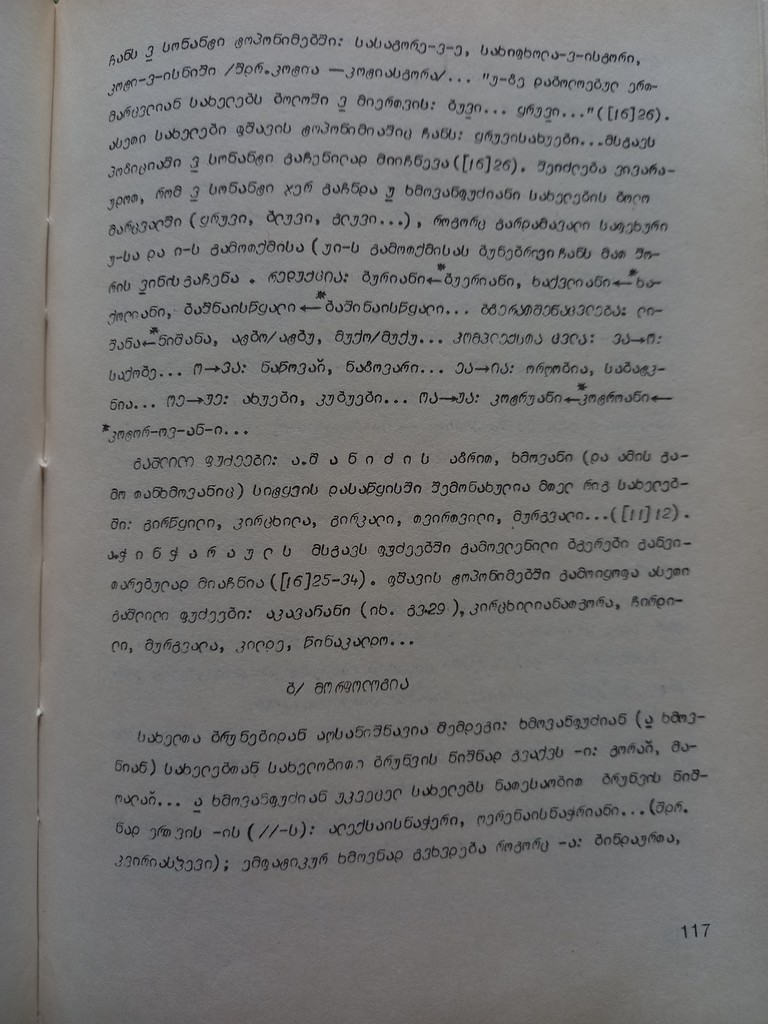 ჩანს ვ სონანტი ტოპონიმებში: სასაგორე-ვ-ე, სახიფხოლა-ვ-ისგორი,
კოტი-ვ-ისნიში /შდრ.კოტია —კოტიასგორა/... "უ-ზე დაბოლოებულ ერთ-
მარცვლიან სახელებს ბოლოში ვ მიერთვის: ბუვი... ყრუვი..."([16]26).
ასეთი სახელები ფშავის ტოპონიმიაშიც ჩანს: ყრუვისახუები...მსგავს
პოზიციაში ვ სონანტი გაჩენილად მიიჩნევა([16]26). შეიძლება ვივარა-
უდოთ, რომ ვ სონანტი ჯერ გაჩნდა უ ხმოვანფუძიანი სახელების ბოლო
მარცვალში (ყრუვი, ბლუვი, გლუვი...), როგორც გარდამავალი საფეხური
უ-სა და ი-ს გამოთქმისა (უი-ს გამოთქმისას ბუნებრივი ჩანს მათ შო-
რის ვინის გაჩენა . რედუქცია: ბურიანი←*ბუერიანი, ხაქვლიანი←*ხა-
ქოლიანი, ბაშნაისწყალი ←*ბაშინაისწყალი... ბგერათმენაცვლება: ლი-
შანა←*ნიშანა, აგბო/აგბუ, მუქო/მუქუ... კომპლექსთა ცვლა: ვა→ო:
საქობე... ო→ვა: ნაწოვარ̌, ნაზოვარი... ეა→ია: ორღობია, საბატკ-
ნია... ოე→უე: ახუები, კუბუები... ოა→უა: კოტრუანი←*კოტროანი←
*კოტორ-ოვ-ან-ი...
გაშლილი ფუძეები: ა.შანიძის აზრით, ხმოვანი (და ამის გა-
მო თანხმოვანიც) სიტყვის დასაწყისში შემონახულია მთელ რიგ სახელებ-
ში: გირწყილი, კირცხილა, გირკალი, თვირთვილი, მურგვალი...([11]12).
ა.ჭინჭარაულს მსგავს ფუძეებში გამოვლენილი ბგერები განვი-
თარებულად მიაჩნია([16]25-34). ფშავის ტოპონიმებში გამოიყოფა ასეთი
გაშლილი ფუძეები: აკავანანი (იხ. გვ.29), კირცხილიანათგორა, ჩირდი-
ლი, მურგვალა, კილდე, წინაკალდო...
ბ/ მორფოლოგია
სახელთა ბრუნებიდან აღსანიშნავია შემდეგი: ხმოვანფუძიან (ა ხმოვ-
ნიან) სახელებთან სახელობითი ბრუნვის ნიშნად გვაქვს -ი: გორაჲ, მა-
ღალაჲ... ა ხმოვანფუძიან უკვეცელ სახელებს ნათესაობით ბრუნვის ნიშ-
ნად ერთვის -ის (//-ს): ალექსაისნაჭერი, ღერენაისნაჭრიანი...(შდრ.
კვირიასჴევი); ემფატიკურ ხმოვნად გვხვდება როგორც -ა: ბინდაურთა,
117